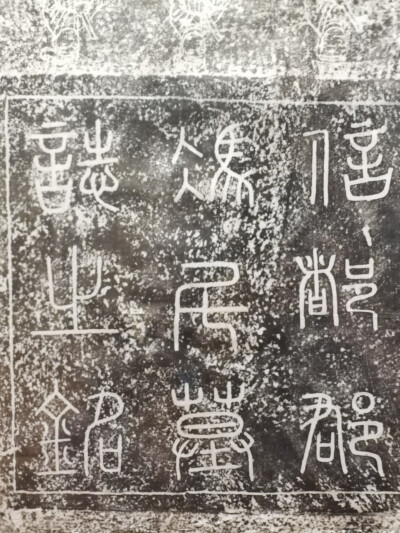 信都郡
馮氏墓
誌之銘